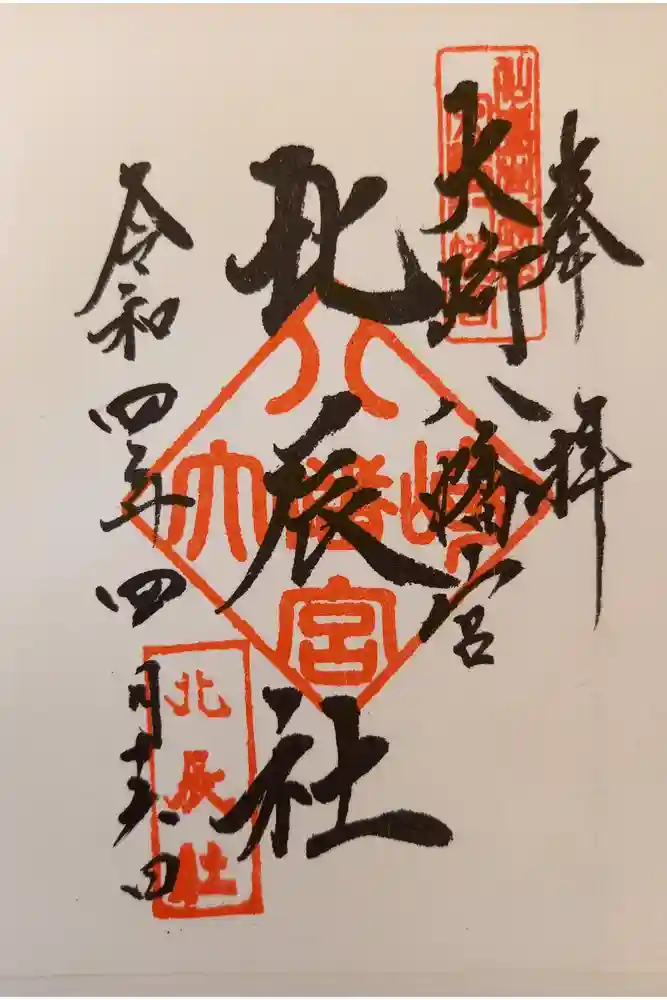 奉拝
大崎八幡宮
北辰社
令和四年四月十六日
大崎八幡宮
北辰社